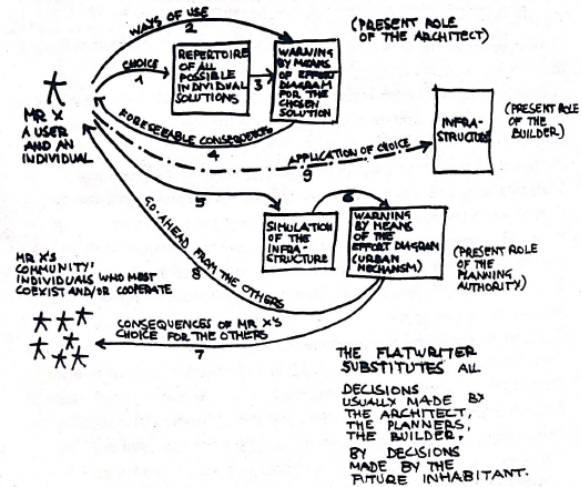 WAYS OF USE
2
CHOICE
1
REPERTOIRE
OF ALL
POSSIBLE
INDIVIDUAL
SOLUTIONS
3
WARNING
BY MEANS
OF EFFORT
DIAGRAM
FOR THE
CHOSEN
SOLUTION
(PRESENT ROLE
OF THE ARCHITECT)
MR X
A USER
AND AN
INDIVIDUAL
FORESEEABLE CONSEQUENCES
4
APPLICATION OF CHOICE
9
INFRA-
STRUCTURE
(PRESENT ROLE
OF THE
BUILDER)
5
SIMULATION
OF THE
INFRA-
STRUCTURE
6
WARNING
BY MEANS
OF THE
EFFORT DIAGRAM
(URBAN
MECHANISM)
(PRESENT ROLE
OF THE
PLANNING
AUTHORITY)
GO-AHEAD FROM THE OTHERS
8
MR X'S
COMMUNITY:
INDIVIDUALS WHO MUST
COEXIST AND/OR COOPERATE
CONSEQUENCES OF MR X'S
CHOICE FOR THE OTHERS
7
THE FLATWRITER
SUBSTITUTES ALL
DECISIONS
USUALLY MADE BY
THE ARCHITECT,
THE PLANNERS,
THE BUILDER,
BY DECISIONS
MADE BY THE
FUTURE INHABITANT.